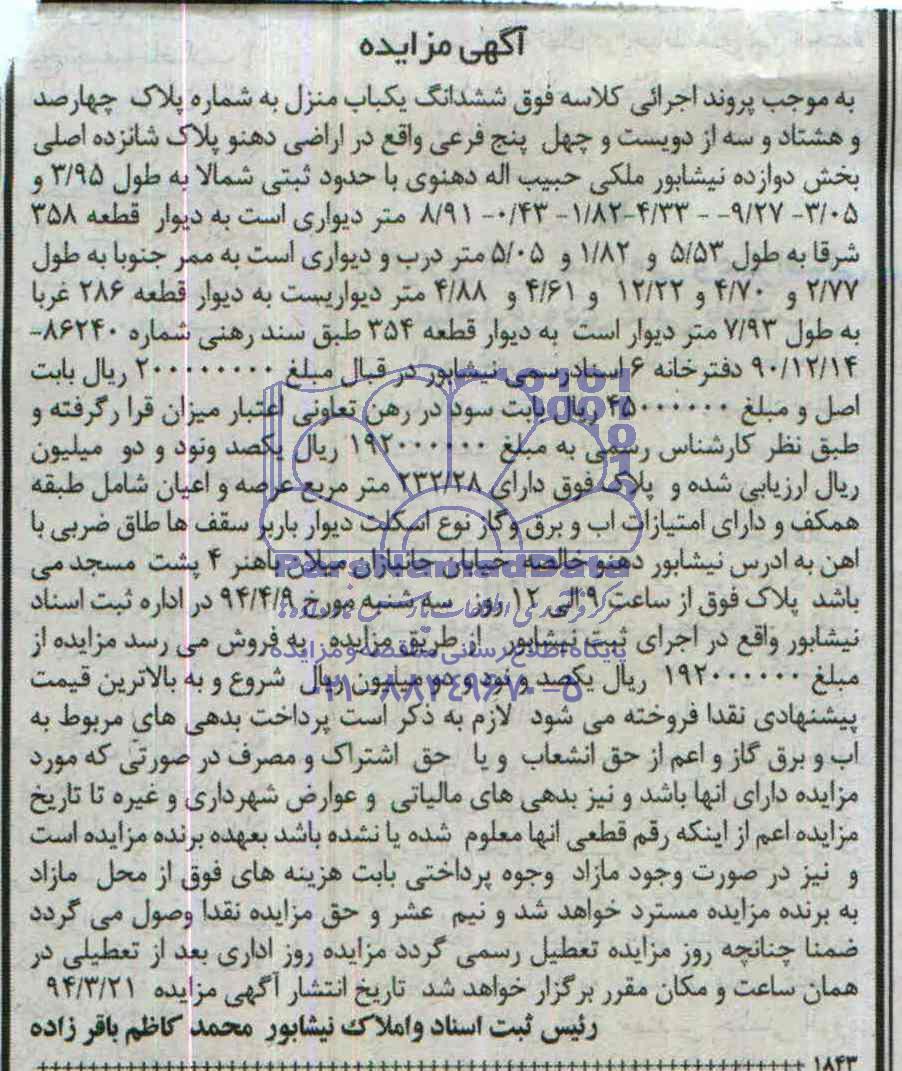 آگهی مزایده
به موجب پروند اجرائی کلاسه فوق ششدانگ یکباب منزل به شماره پلاک چهارصد
و هشتاد و سه از دویست و چهل پنج فرعی واقع در اراضی دهنو پلاک شانزده اصلی
بخش دوازده نیشابور ملکی حبیب اله دهنوی با حدود ثبتی شمالا به طول ۳/۹۵ و
۳/۰۵- ۹/۲۷- - ۴/۳۳-۱/۸۲- ۰/۴۳- ۸/۹۱ متر دیواری است به دیوار قطعه ۳۵۸
شرقا به طول ۵/۵۳ و ۱/۸۲ و ۵/۰۵ متر درب و دیواری است به ممر جنوبا به طول
۲/۷۷ و ۴/۷۰ و ۱۲/۲۲ و ۴/۶۱ و ۴/۸۸ متر دیواریست به دیوار قطعه ۲۸۶ غربا
به طول ۷/۹۳ متر دیوار است به دیوار قطعه ۳۵۴ طبق سند رهنی شماره ۸۶۲۴۰-
۹۰/۱۲/۱۴ دفترخانه ۶ اسنادرسمی نیشابور در قبال مبلغ ۲۰۰۰۰۰۰۰۰ ریال بابت
اصل و مبلغ ۴۵۰۰۰۰۰۰ ریال بابت سود در رهن تعاونی اعتبار میزان قرا رگرفته و
طبق نظر کارشناس رسمی به مبلغ ۱۹۲۰۰۰۰۰۰ ریال یکصد ونود و دو میلیون
ریال ارزیابی شده و پلاک فوق دارای ۲۳۲/۲۸ متر مربع عرصه و اعیان شامل طبقه
همکف و دارای امتیازات اب و برق وگاز نوع اسکلت دیوار باربر سقف ها طاق ضربی با
اهن به ادرس نیشابور دهنو خالصه خیابان جانبازان میلان باهنر ۴ پشت مسجد می
باشد پلاک فوق از ساعت ۹ الی ۱۲ روز سه شنبه مورخ ۹۴/۴/۹ در اداره ثبت اسناد
نیشابور واقع در اجرای ثبت نیشابور از طریق مزایده به فروش می رسد مزایده از
مبلغ ۱۹۲۰۰۰۰۰۰ ریال یکصد و نود و دو میلیون ریال شروع و به بالاترین قیمت
پیشنهادی نقدا فروخته می شود لازم به ذکر است پرداخت بدهی های مربوط به
اب و برق گاز و اعم از حق انشعاب و یا حق اشتراک و مصرف در صورتی که مورد
مزایده دارای انها باشد و نیز بدهی های مالیاتی و عوارض شهرداری و غیره تا تاریخ
مزایده اعم از اینکه رقم قطعی انها معلوم شده یا نشده باشد بعهده برنده مزایده است
و نیز در صورت وجود مازاد وجوه پرداختی بابت هزینه های فوق از محل مازاد
به برنده مزایده مسترد خواهد شد و نیم عشر و حق مزایده نقدا وصول می گردد
ضمنا چنانچه روز مزایده تعطیل رسمی گردد مزایده روز اداری بعد از تعطیلی در
همان ساعت و مکان مقرر برگزار خواهد شد تاریخ انتشار آگهی مزایده ۹۴/۳/۲۱
رئیس ثبت اسناد واملاک نیشابور محمد کاظم باقر زاده
۱۸۴۳
ParsNamadData
پایگاه اطلاع رسانی مناقصه و مزایده
۰۲۱-۸۸۳۴۹۶۷۰-۵